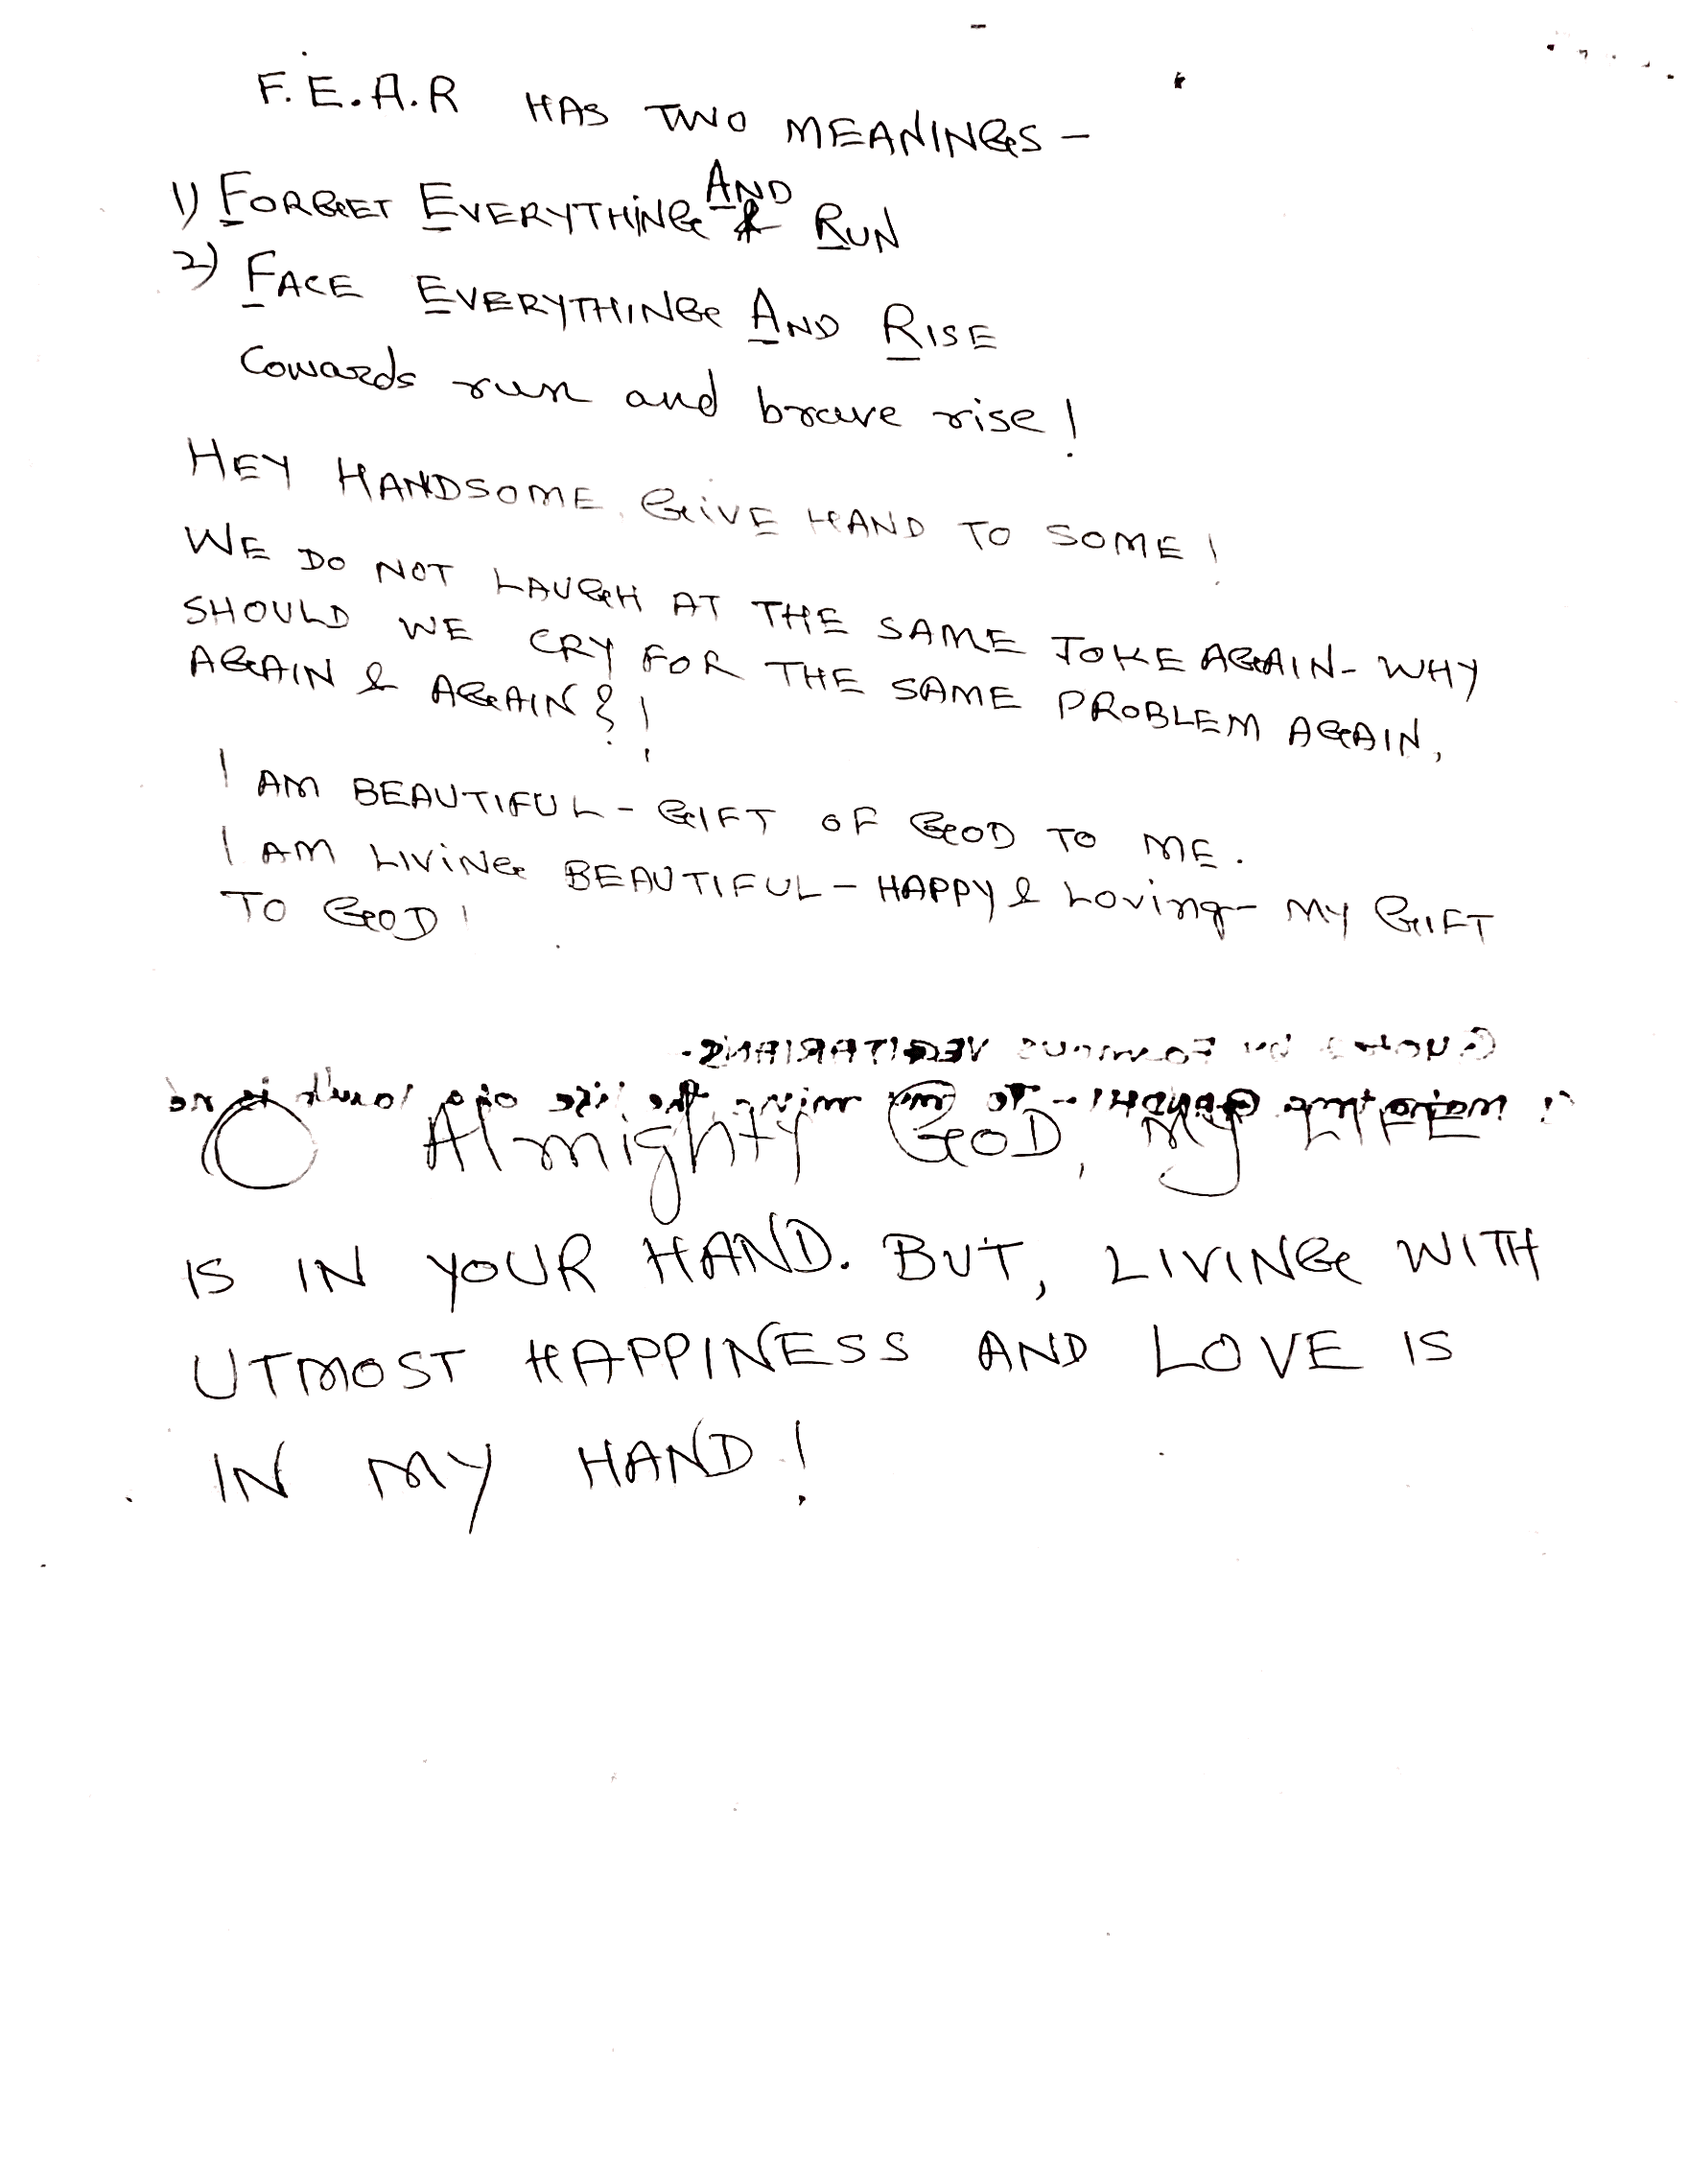 F.E.A.R HAS TWO MEANINGS -
1) FORGET EVERYTHING AND RUN
2) FACE EVERYTHING AND RISE
Cowards run and brave rise!
HEY HANDSOME, GIVE HAND TO SOME!
WE DO NOT LAUGH AT THE SAME JOKE AGAIN- WHY
SHOULD WE CRY FOR THE SAME PROBLEM AGAIN,
AGAIN & AGAIN ?!
I AM BEAUTIFUL - GIFT OF GOD TO ME.
I AM LIVING BEAUTIFUL - HAPPY & Loving- MY GIFT
TO GOD!
Quotes by Famous VEGITARIANS-
Mahatma Gandhi - To my mind, the life of a lamb is no
O Almighty GOD, My LIFE
IS IN YOUR HAND. BUT, LIVING WITH
UTMOST HAPPINESS AND LOVE IS
IN MY HAND!